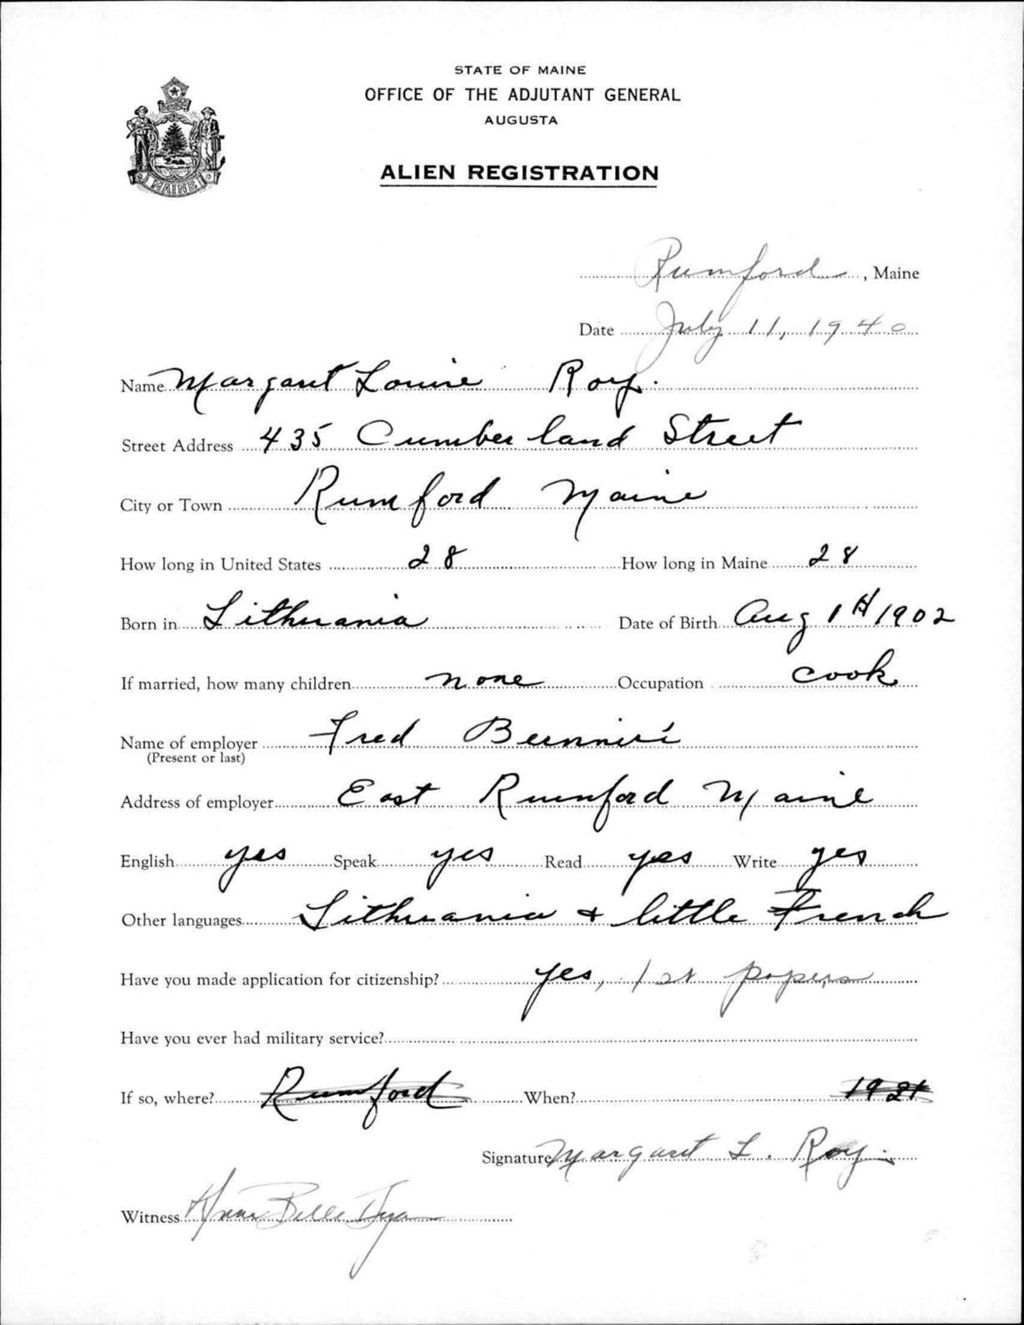 STATE OF MAINE
OFFICE OF THE ADJUTANT GENERAL
AUGUSTA
ALIEN REGISTRATION
MAINE
Rumford, Maine
Date July 11, 1940
Name Margaret Louise Roy.
Street Address 435 Cumberland Street
City or Town Rumford Maine
How long in United States 28 How long in Maine 28
Born in Lithuania Date of Birth Aug 1st 1902
If married, how many children none Occupation cook
Name of employer Fred
(Present or last)
Address of employer East Rumford Maine
English yes Speak yes Read yes Write yes
Other languages Lithuania + little French
Have you made application for citizenship? yes, 1st papers
Have you ever had military service?
If so, where? Rumford When? 1921
Signature Margaret L. Roy.
Witness Belle